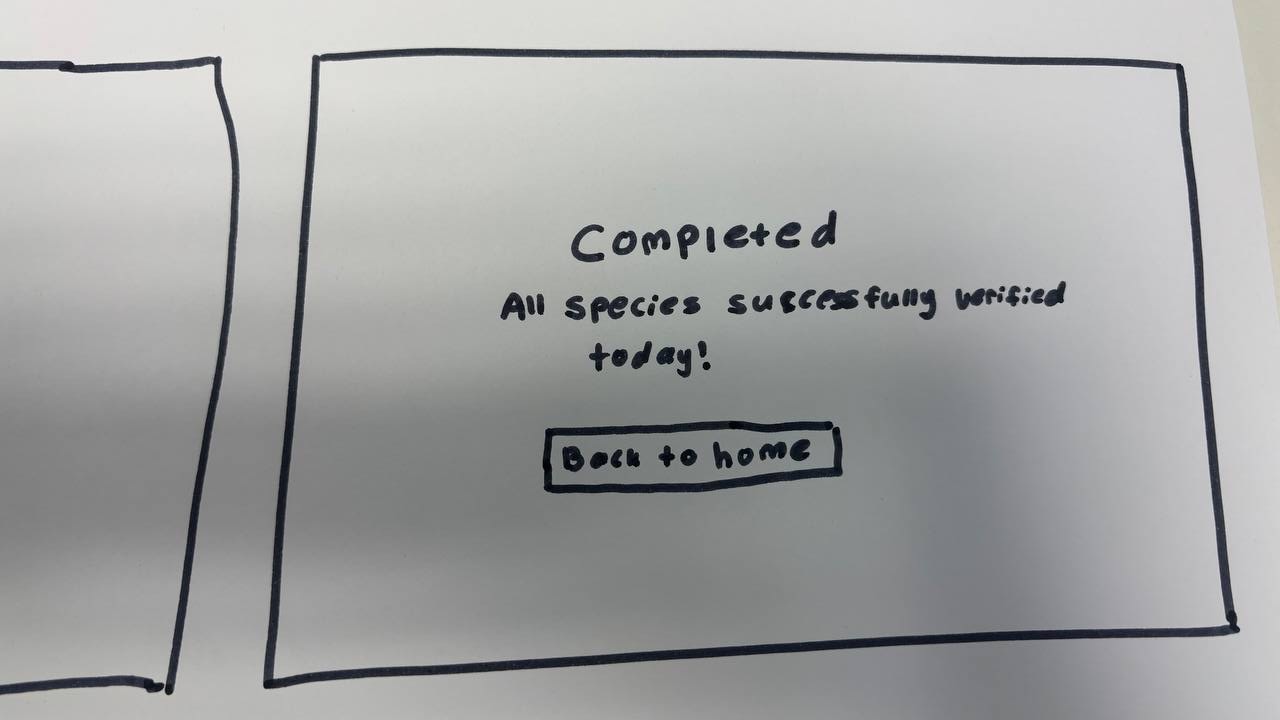 Completed
All species successfully verified
today!
Back to home